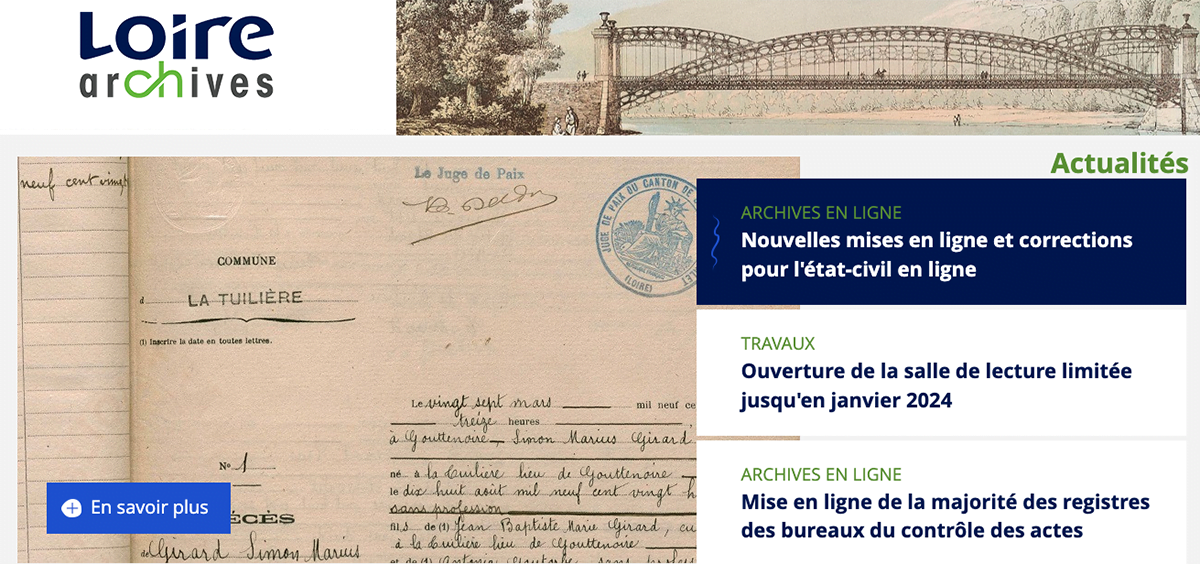 Loire
archives
Actualités
neuf cent vingt
Le Juge de Paix
JUGE DE PAIX DU CANTON DE
(LOIRE)
COMMUNE
d LA TUILIÈRE
(1) Inscrire la date en toutes lettres.
Le vingt sept mars mil neuf ce
treize heures
à Gouttenoire Simon Marius Girard
N° 1
né à la Cuilière lieu de Gouttenoire
le dix huit août mil neuf cent vingt h
sans profession
fils de (1) Jean Baptiste Marie Girard, cu
à la Cuilière lieu de Gouttenoire
et de (1) Antonia sans profes
ÉCÈS
de Girard Simon Marius
En savoir plus
ARCHIVES EN LIGNE
Nouvelles mises en ligne et corrections
pour l'état-civil en ligne
TRAVAUX
Ouverture de la salle de lecture limitée
jusqu'en janvier 2024
ARCHIVES EN LIGNE
Mise en ligne de la majorité des registres
des bureaux du contrôle des actes